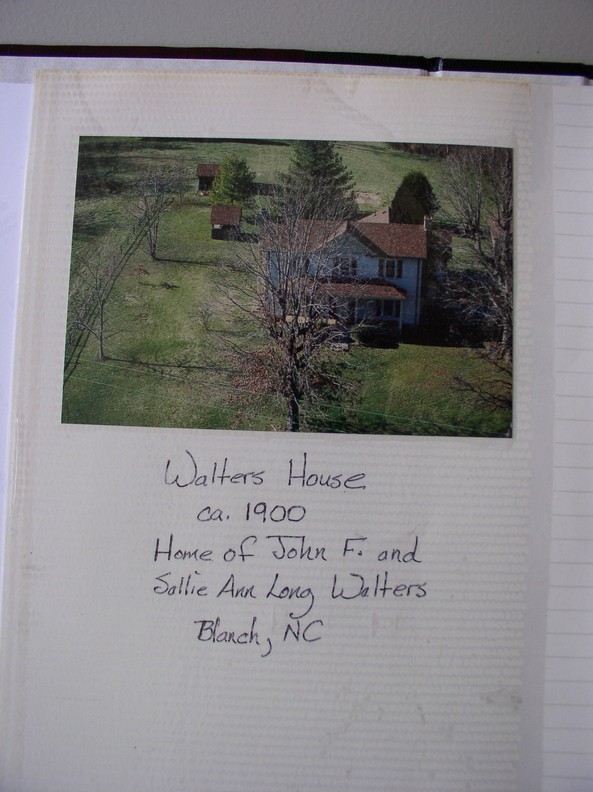 Walters House
ca. 1900
Home of John F. and
Sallie Ann Long Walters
Blanch, NC